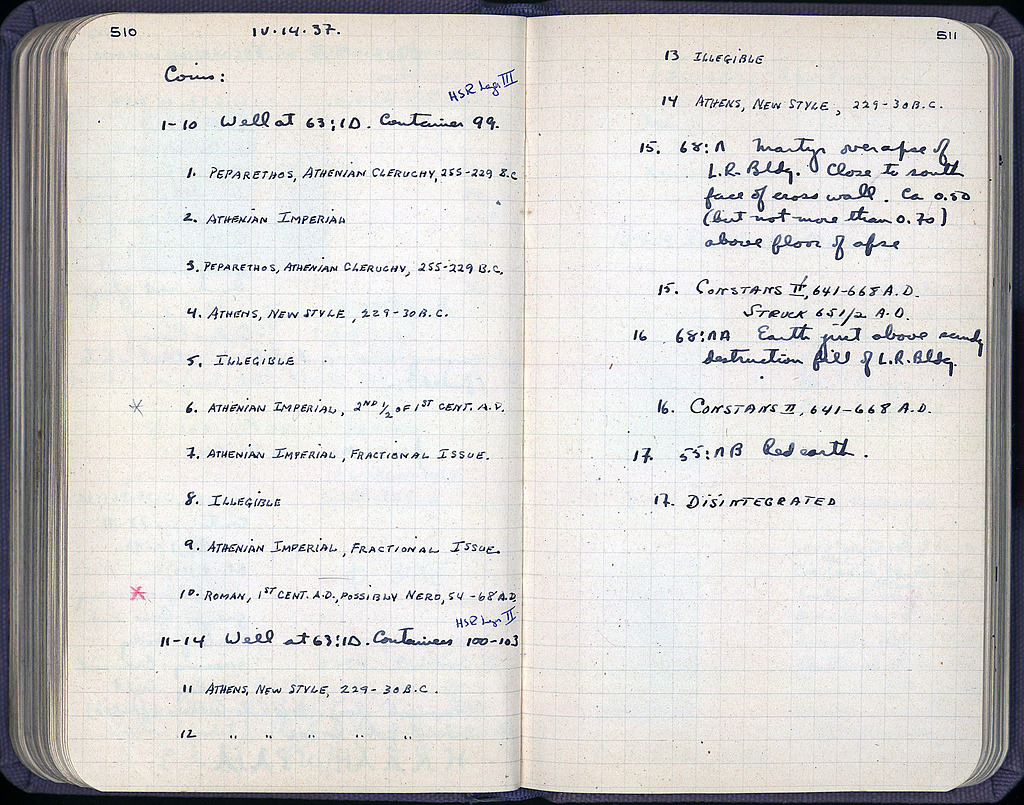 510
IV.14.37.
Coins:
HSR Lage III
1-10 Well at 63:ΙΔ. Container 99.
1. PEPARETHOS, ATHENIAN CLERUCHY, 255-229 B.C
2. ATHENIAN IMPERIAL
3. PEPARETHOS, ATHENIAN CLERUCHY, 255-229 B.C.
4. ATHENS, NEW STYLE, 229-30 B.C.
5. ILLEGIBLE
6. ATHENIAN IMPERIAL, 2ND 1/2 OF 1ST CENT. A.D.
7. ATHENIAN IMPERIAL, FRACTIONAL ISSUE.
8. ILLEGIBLE
9. ATHENIAN IMPERIAL, FRACTIONAL ISSUE.
10. ROMAN, 1ST CENT. A.D., POSSIBLY NERO, 54-68 A.D.
HSR Lage II
11-14 Well at 63:ΙΔ. Containers 100-103
11 ATHENS, NEW STYLE, 229-30 B.C.
12 " " " " "
511
13 ILLEGIBLE
14 ATHENS, NEW STYLE, 229-30 B.C.
15. 68:Λ Martyr over apse of
L.R. Bldg. Close to south
face of cross wall. Ca 0.50
(but not more than 0.70)
above floor of apse
15. CONSTANS II, 641-668 A.D.
STRUCK 651/2 A.D.
16 68:ΛΛ Earth just above sandy
destruction fill of L.R. Bldg.
16. CONSTANS II, 641-668 A.D.
17. 55:ΛΒ Red earth.
17. DISINTEGRATED